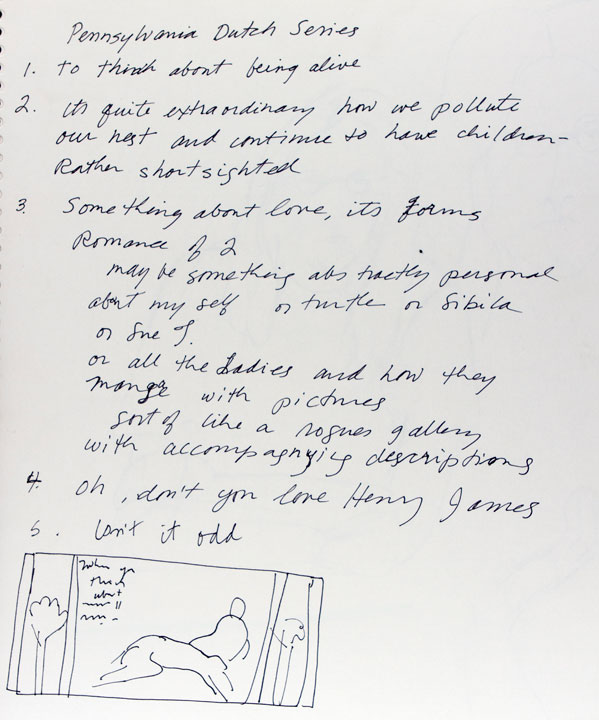 Pennsylvania Dutch Series
1. To think about being alive
2. Its quite extraordinary how we pollute
our nest and continue to have children—
Rather shortsighted
3. Something about love, its forms
Romance of 2
may be something abstractly personal
about my self or turtle or Sibila
or Sue J.
or all the Ladies and how they
mange with pictures
sort of like a rogues gallery
with accompagnying descriptions
4. Oh, don't you love Henry James
5. Isn't it odd
When you
think
about